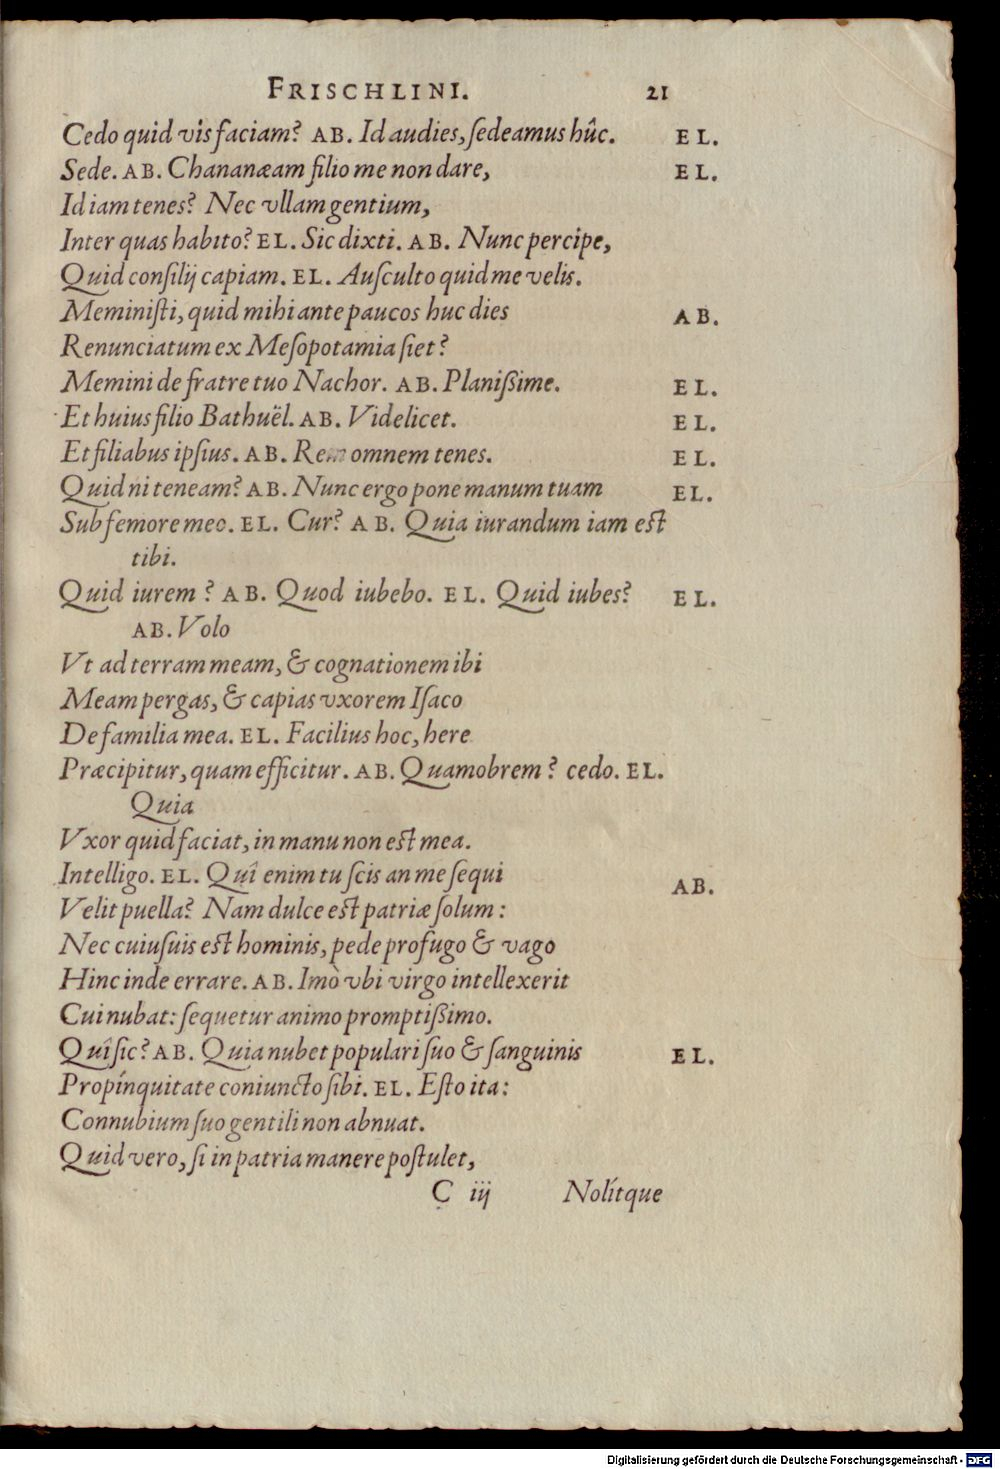 FRISCHLINI. 21
Cedo quid vis faciam? AB. Id audies, ſedeamus hûc. EL.
Sede. AB. Chananæam filio me non dare, EL.
Id iam tenes? Nec vllam gentium,
Inter quas habito? EL. Sic dixti. AB. Nunc percipe,
Quid conſilij capiam. EL. Auſculto quid me velis.
Meminiſti, quid mihi ante paucos huc dies AB.
Renunciatum ex Meſopotamia ſiet?
Memini de fratre tuo Nachor. AB. Planißime. EL.
Et huius filio Bathuël. AB. Videlicet. EL.
Et filiabus ipſius. AB. Rem omnem tenes. EL.
Quid ni teneam? AB. Nunc ergo pone manum tuam EL.
Sub femore meo. EL. Cur? AB. Quia iurandum iam eſt
tibi.
Quid iurem? AB. Quod iubebo. EL. Quid iubes? EL.
AB. Volo
Vt ad terram meam, & cognationem ibi
Meam pergas, & capias vxorem Iſaco
De familia mea. EL. Facilius hoc, here
Præcipitur, quam efficitur. AB. Quamobrem? cedo. EL.
Quia
Vxor quid faciat, in manu non eſt mea.
Intelligo. EL. Quî enim tu ſcis an me ſequi AB.
Velit puella? Nam dulce eſt patriæ ſolum:
Nec cuiuſuis eſt hominis, pede profugo & vago
Hinc inde errare. AB. Imò vbi virgo intellexerit
Cui nubat: ſequetur animo promptißimo.
Quî ſic? AB. Quia nubet populari ſuo & ſanguinis EL.
Propínquitate coniuncto ſibi. EL. Eſto ita:
Connubium ſuo gentili non abnuat.
Quid vero, ſi in patria manere poſtulet,
C iij Nolítque
Digitalisierung gefördert durch die Deutsche Forschungsgemeinschaft - DFG